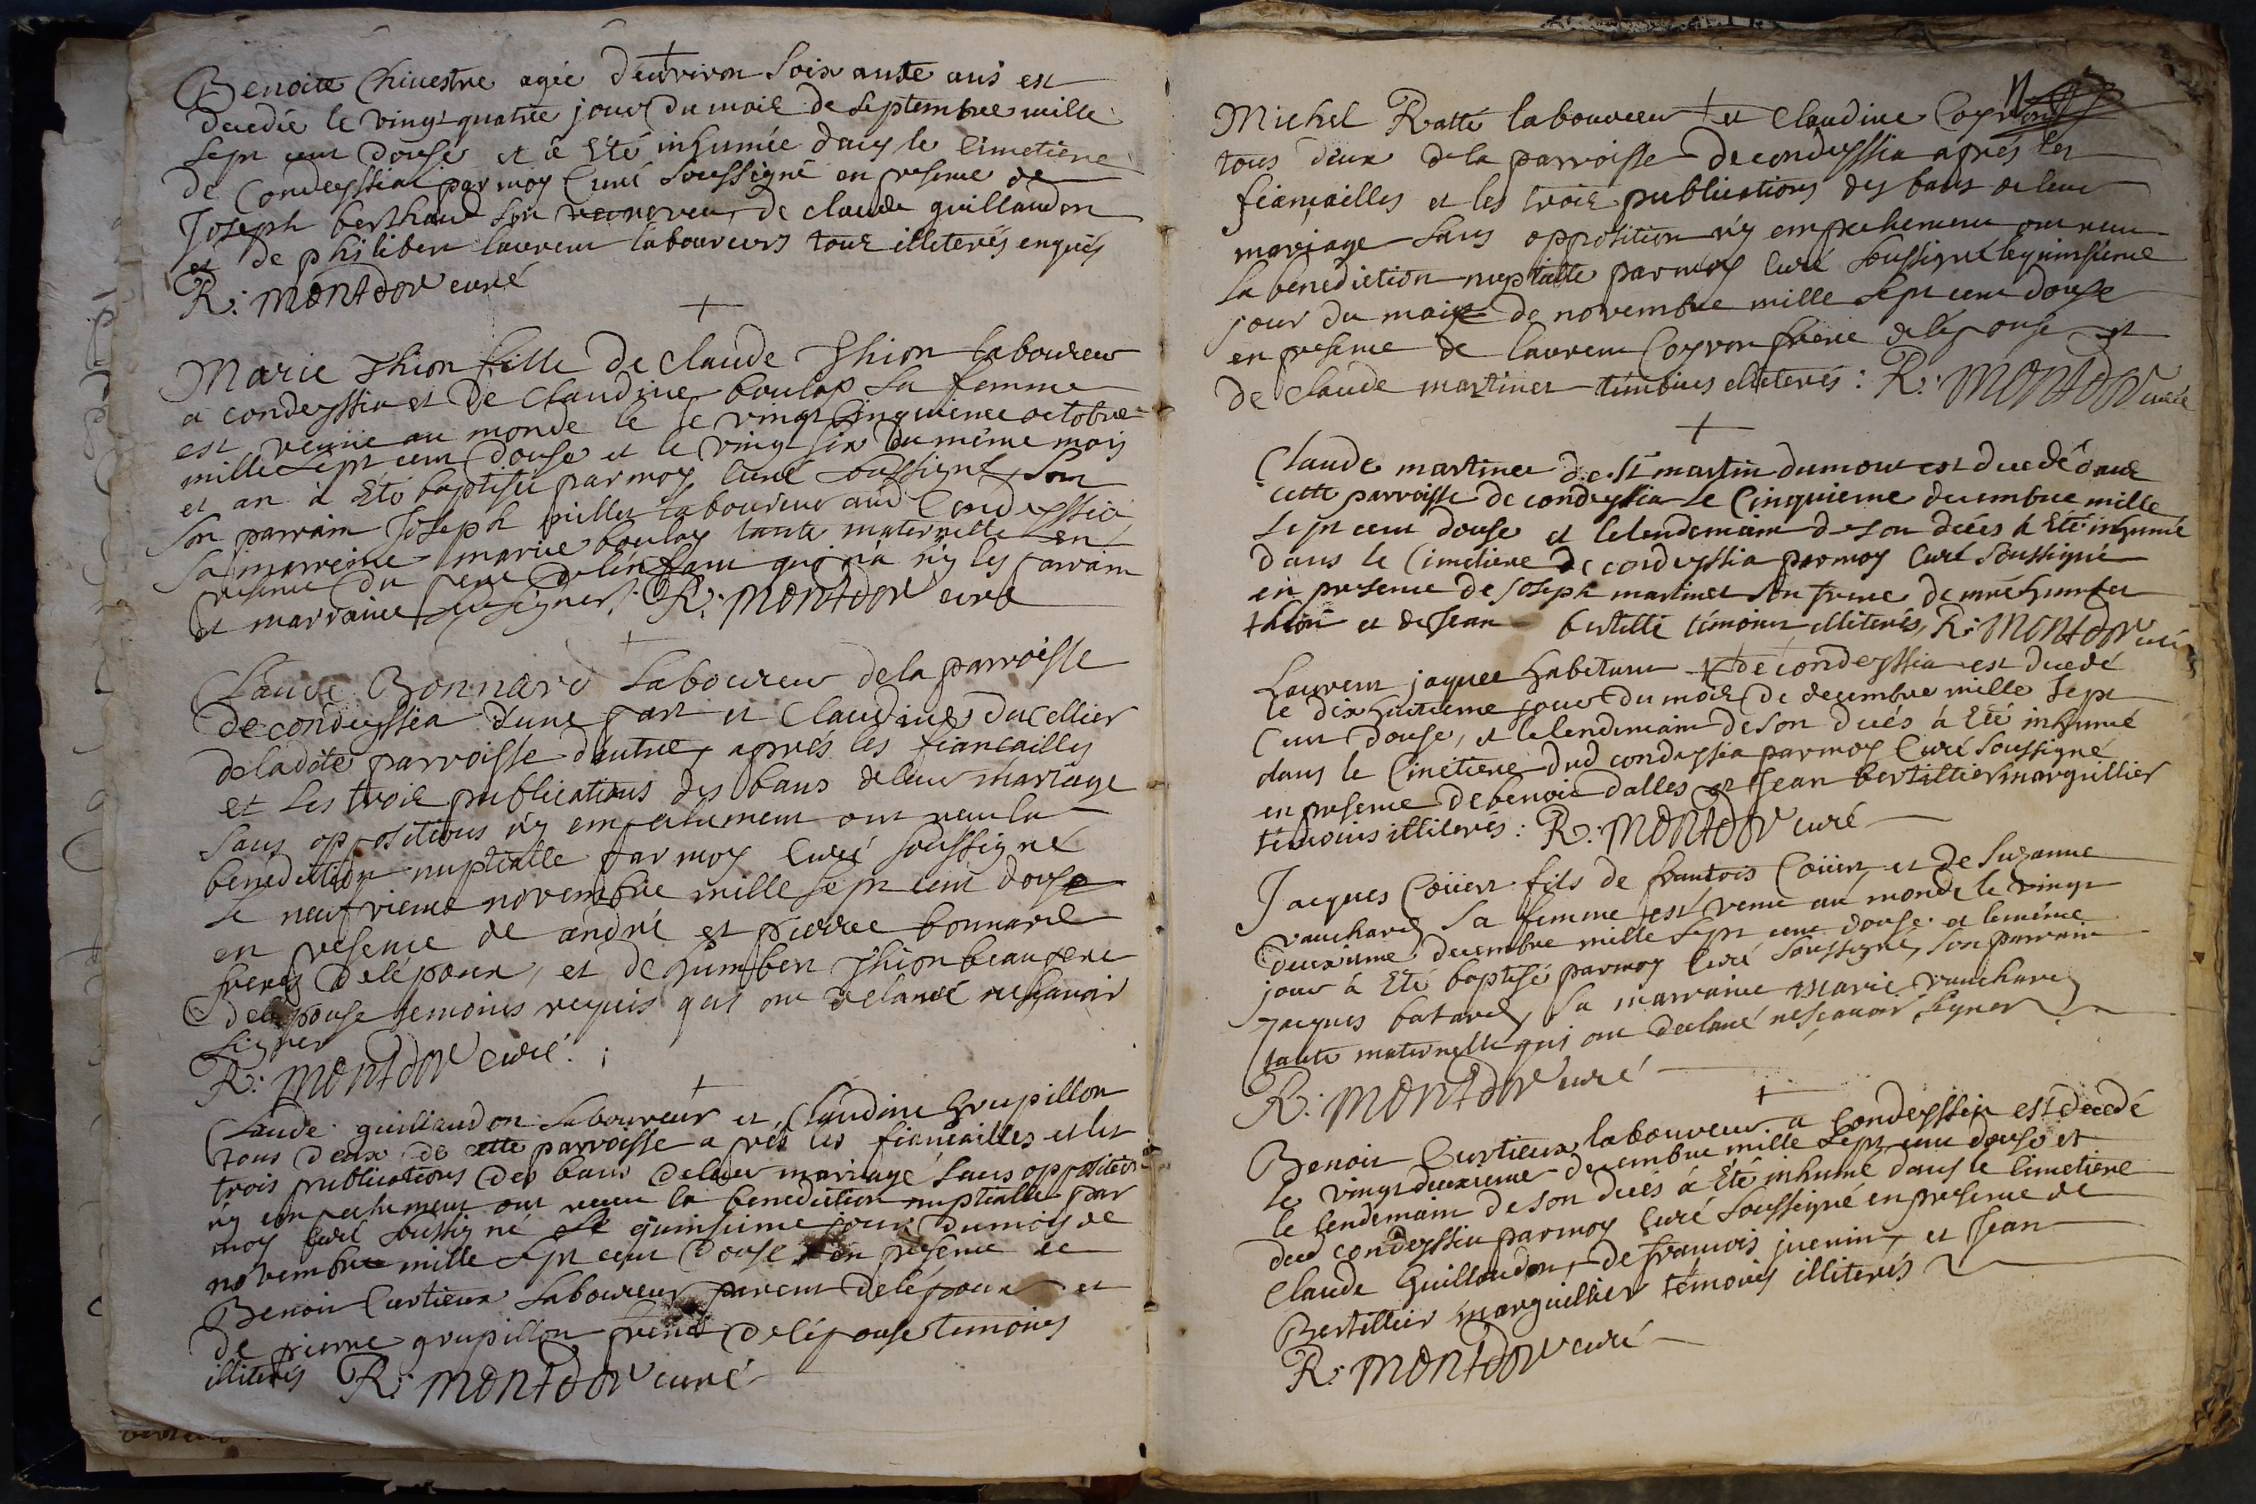 Benoite Chinestre agée d'environ soix ante ans est
decedée le vingt quatre jour du mois de septembre mille
sept cent douse et a eté inhumée dans le cimetiere
de condeyssiat par moy curé soussigné en presence de
Joseph berthaud son neveu, de claude guillaudon
et de philibert laurent laboureurs tous illiterés enquis
R: montdor curé
Marie Thion fille de claude Thion laboureur
a condeyssia et de claudine boulay sa femme
est venue au monde le le vingt cinquieme octobre
mille sept cent douse et le vingt six du même mois
et an a eté baptisée par moy curé soussigné son
son parrain Joseph millet laboureur aud Condeyssia
sa marraine marie boulay tante maternelle en
presence du pere de l'enfant qui n'a n'y les parrain
et marraine sceu signer. R: montdor curé
Claude Bonnard laboureur de la parroisse
de condeyssia d'une part et Claudine du Cellier
de la dite parroisse d'autre, aprés les fiancailles
et les trois publications des bans de leur mariage
sans oppositions n'y empechement ont receu la
benediction nuptialle par moy curé soussigné
le neufvieme novembre mille sept cent douse
en presence de andré et pierre bonnard
freres de lépoux, et de humbert Thion beaupere
de lépouse temoins requis qui ont declaré ne scavoir
signer
R: montdor curé.
Claude guillaudon laboureur et Claudine Grupillon
tous deux de cette parroisse aprés les fiancailles et les
trois publications des bans de leur mariage sans opposition
n'y empechement ont receu la benediction nuptialle par
moy curé soussigné le quinsieme jour du mois de
novembre mille sept cent douse en presence de
Benoit Curtieux laboureur parent de lépoux et
de pierre grupillon frere de lépouse temoins
illiterés R: montdor curé
11
Michel Ratte laboureur et Claudine Coyron
tous deux de la parroisse de condeyssia aprés les
fiançailles et les trois publications des bans de leur
mariage sans opposition n'y empechement ont receu
la benediction nuptialle par moy curé soussigné le quinsieme
jour du mois de novembre mille sept cent douse
en presence de laurent Coyron frere de lépouse et
de Claude martinet témoins illiterés: R: montdor curé
Claude martinet de St martin du mont est decedé dans
cette parroisse de condeyssia le cinquieme decembre mille
sept cent douse et le lendemain de son decés à eté inhumé
dans le Cimetiere de condeyssia par moy curé soussigné
en presence de Joseph martinet son frere de humbert
thion et de Jean bertillié témoins illiterés, R: montdor curé
Laurent jaquet habitant de condeyssia est decedé
le dix huitieme jour du mois de decembre mille sept
Cent douse, et le lendemain de son decés à eté inhumé
dans le Cimetiere dud condeyssia par moy Curé soussigné
en presence de benoit dalles et Jean bertillier marguillier
témoins illiterés: R: montdor curé
Jacques Coiier fils de francois Coiier et de Suzanne
vauchard sa femme est venu au monde le vingt
deuxieme decembre mille sept cent douse et le même
jour à eté baptisé par moy curé soussigné, son parrain
Jacques batard, sa marraine Marie vauchard
tante maternelle qui ont declaré ne sçavoir signer
R: montdor curé
Benoit Curtieux laboureur a Condeyssia est decedé
le vingt deuxieme decembre mille sept cent douse et
le lendemain de son decés à eté inhumé dans le cimetiere
dud condeyssia par moy curé soussigné en presence de
Claude Guillaudon, de françois juenin, et Jean
Bertillier marguillier témoins illiterés
R: montdor curé